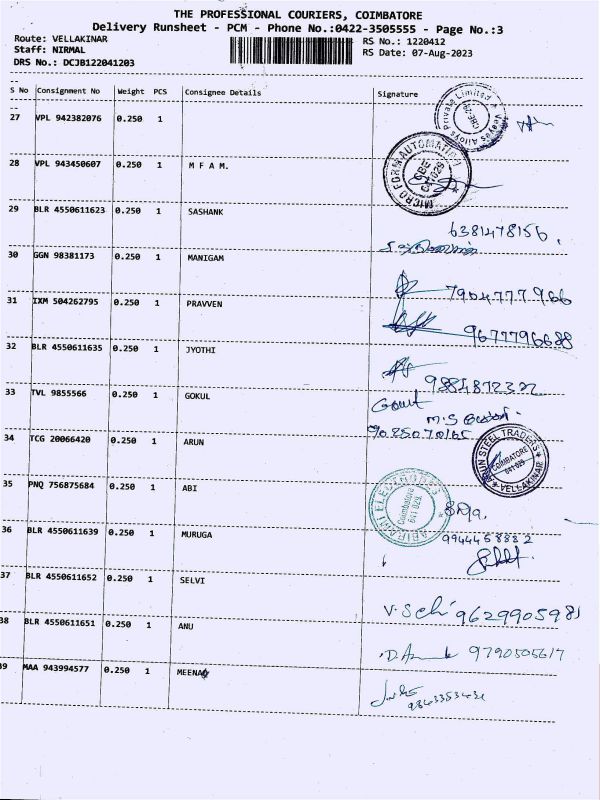 THE PROFESSIONAL COURIERS, COIMBATORE
Delivery Runsheet - PCM - Phone No.:0422-3505555 - Page No.:3
Route: VELLAKINAR RS No.: 1220412
Staff: NIRMAL RS Date: 07-Aug-2023
DRS No.: DCJB122041203
S No Consignment No Weight PCS Consignee Details Signature
27 VPL 942382076 0.250 1
28 VPL 943450607 0.250 1 M F A M.
MICRO FORM AUTOMATION
29 BLR 4550611623 0.250 1 SASHANK
6381478156.
30 GGN 98381173 0.250 1 MANIGAM
7904777966
31 IXM 504262795 0.250 1 PRAVVEN
9677796688
32 BLR 4550611635 0.250 1 JYOTHI
9884872322
33 TVL 9855566 0.250 1 GOKUL
34 TCG 20066420 0.250 1 ARUN
ARUN STEEL TRADERS
COIMBATORE
641 029.
VELLAKINAR
35 PNQ 756875684 0.250 1 ABI
Coimbatore
641 029.
36 BLR 4550611639 0.250 1 MURUGA
9944458882
37 BLR 4550611652 0.250 1 SELVI
V. Selvi 9629905981
38 BLR 4550611651 0.250 1 ANU
9790505617
39 MAA 943994577 0.250 1 MEENA
9843353431